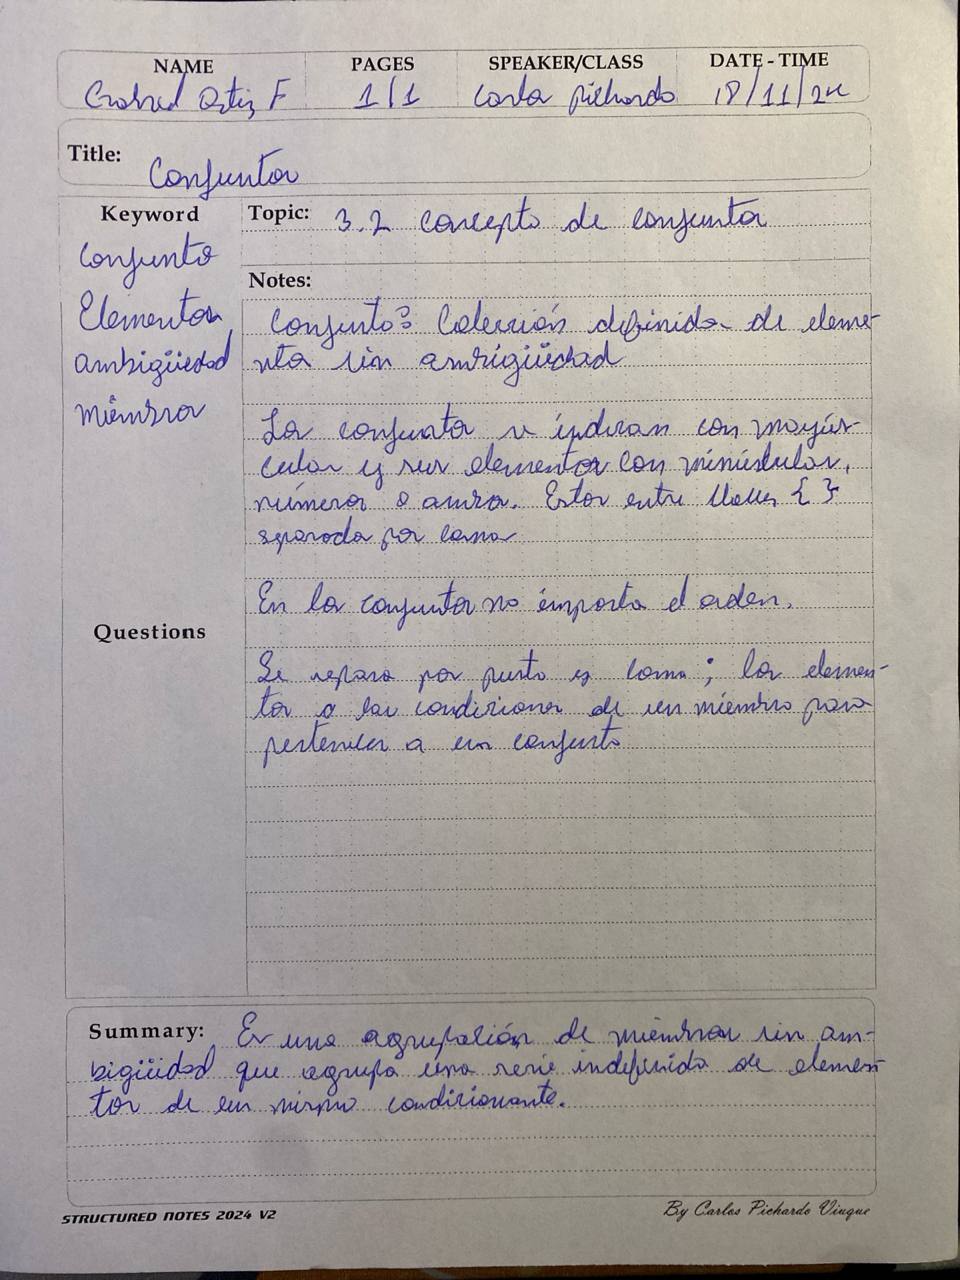 NAME PAGES SPEAKER/CLASS DATE - TIME
Ortiz F 1/1 Carlos Pichardo 18/11/24
Title: Conjuntos
Keyword
Conjunto
Elementos
ambigüedad
miembros
Topic: 3.2 concepto de conjuntos
Notes:
Conjunto: Colección definida de eleme-
ntos sin ambigüedad
Los conjuntos se indican con mayús-
culas y sus elementos con minúsculas,
números o ambos. Estos entre llaves { }
separados por comas
En los conjuntos no importa el orden.
Questions
Se separa por punto y coma ; los elemen-
tos o las condiciones de un miembro para
pertenecer a un conjunto
Summary: Es una agrupación de miembros sin am-
bigüedad que agrupa una serie indefinida de elemen-
tos de un mismo condicionante.
STRUCTURED NOTES 2024 V2
By Carlos Pichardo Viuque